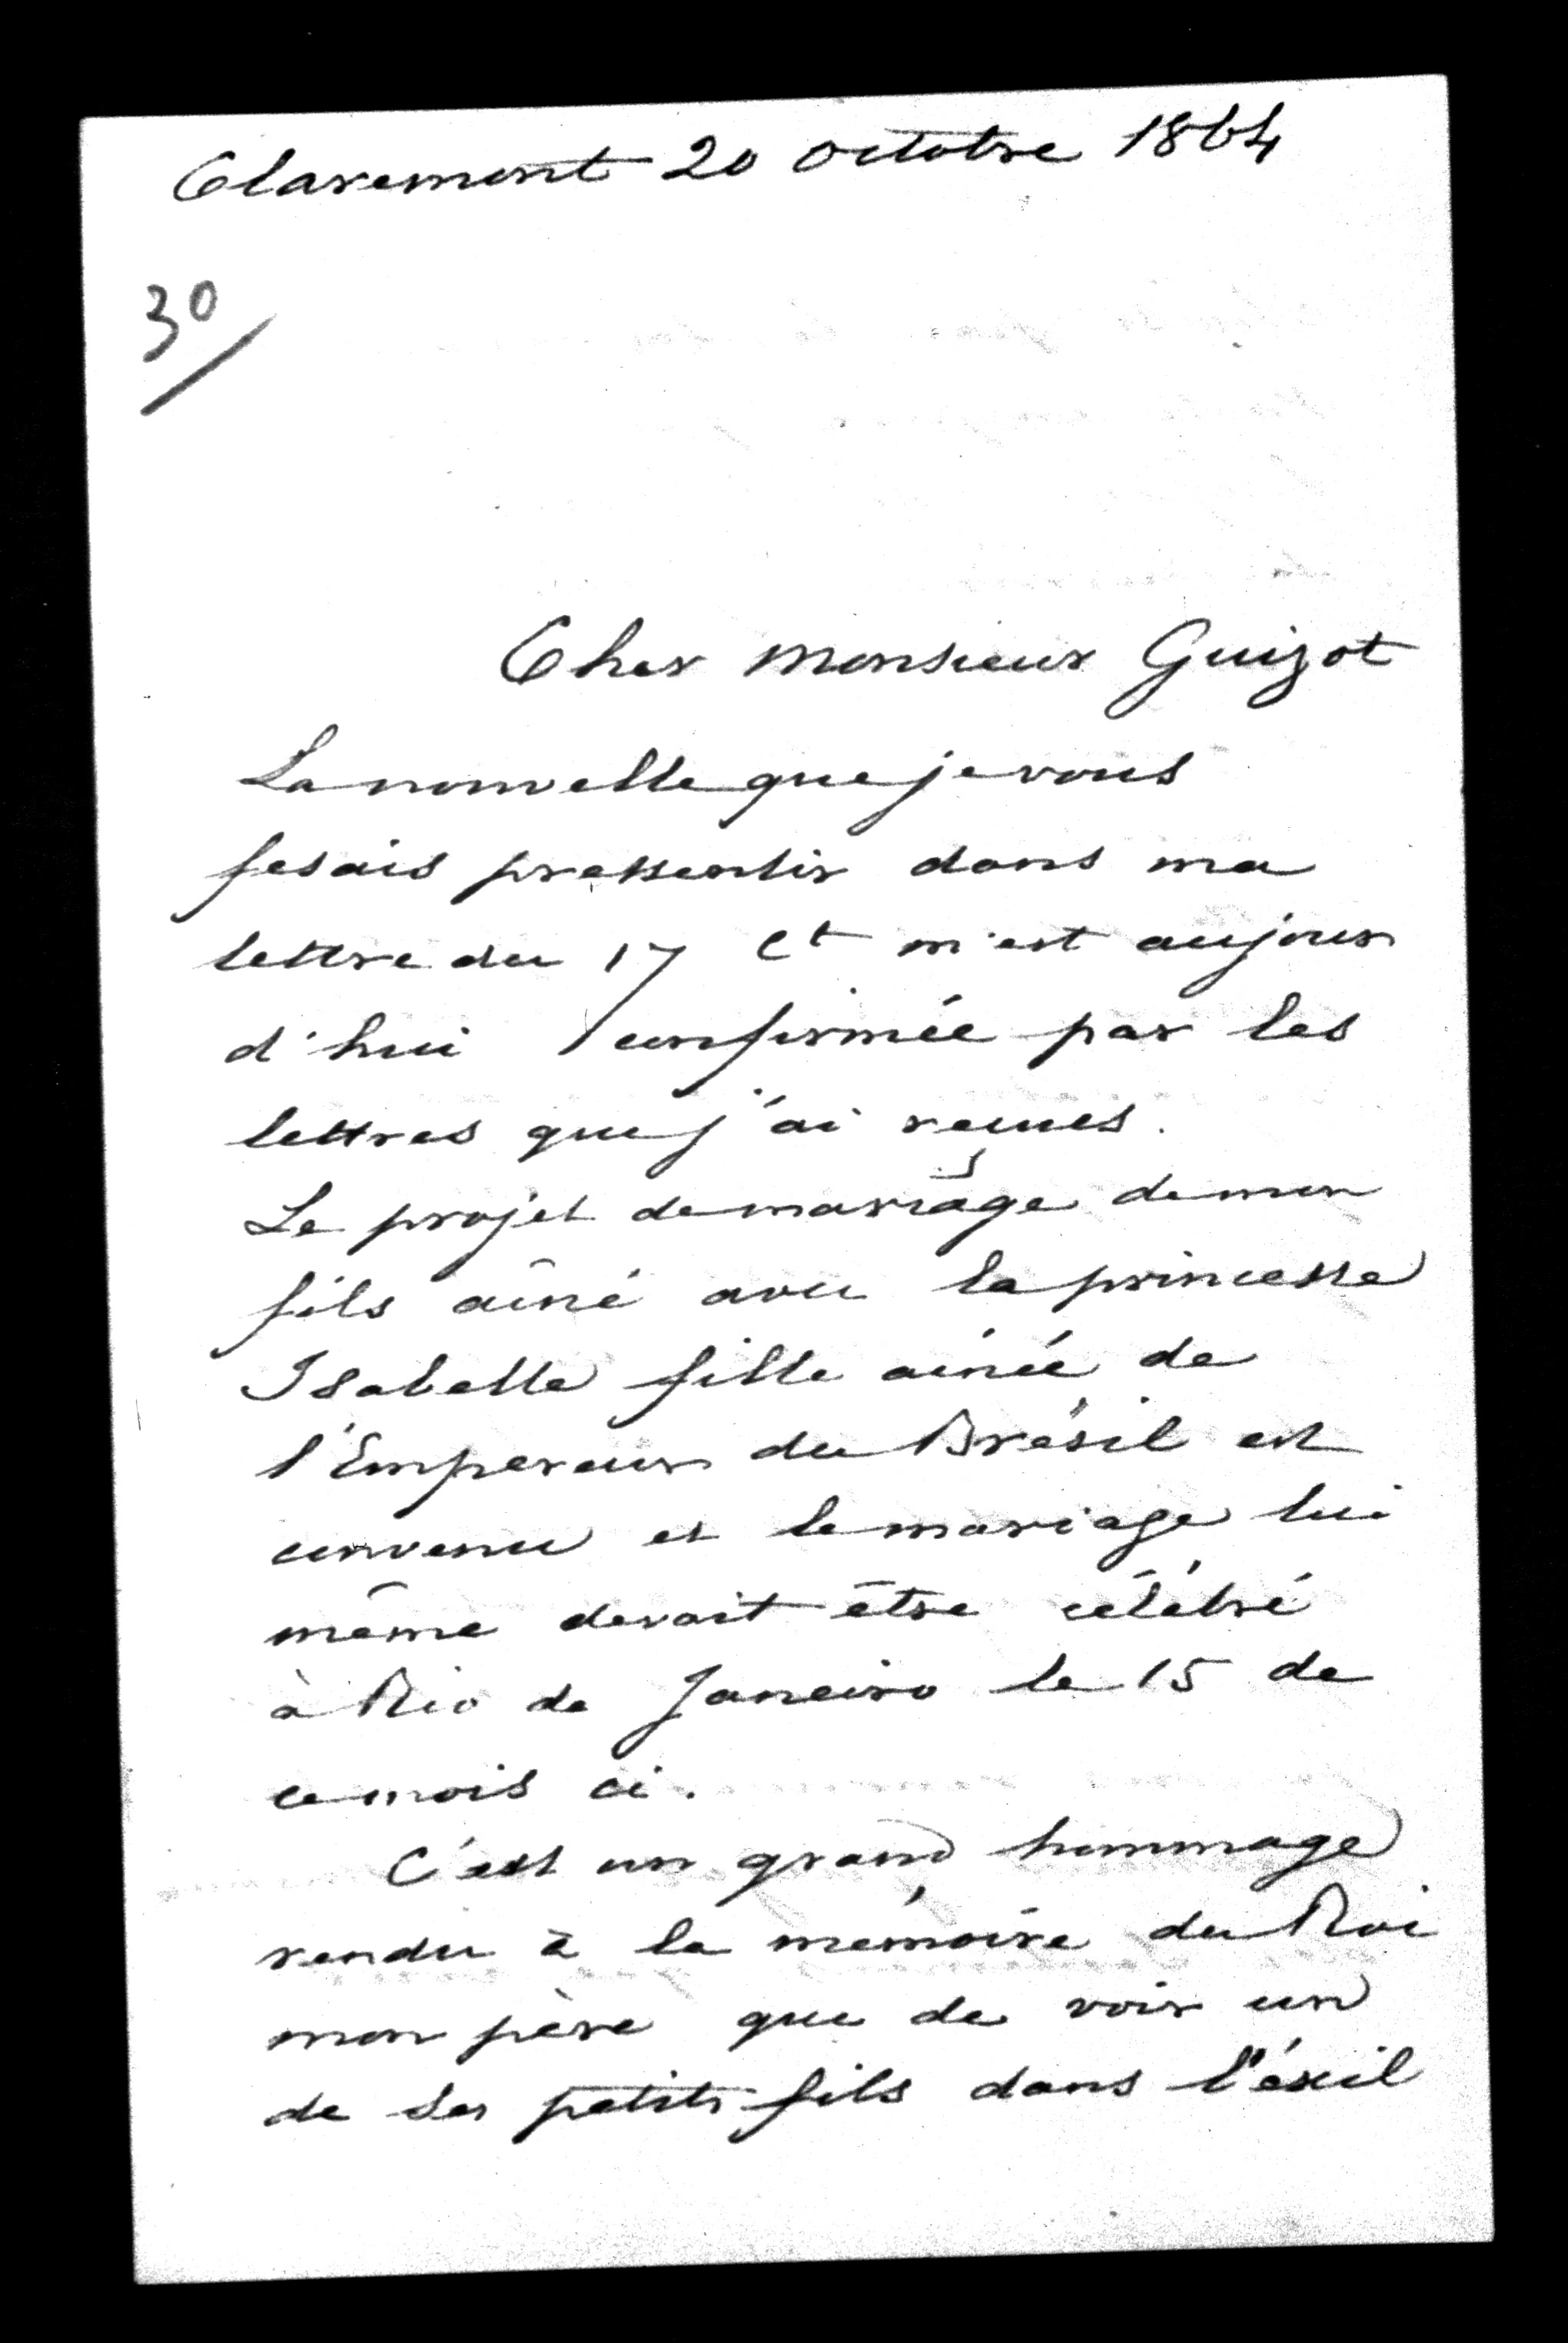 Claremont 20 octobre 1864
30
Cher Monsieur Guizot
La nouvelle que je vous
fesais pressentir dans ma
lettre du 17 Ct m'est aujour
d'hui confirmée par les
lettres que j'ai reçues.
Le projet de mariage de mon
fils aîné avec la princesse
Isabelle fille ainée de
l'Empereur du Brésil est
convenu et le mariage lui
même devait être célébré
à Rio de Janeiro le 15 de
ce mois ci.
C'est un grand hommage
rendu à la mémoire du Roi
mon père que de voir un
de ses petits fils dans l'éxil